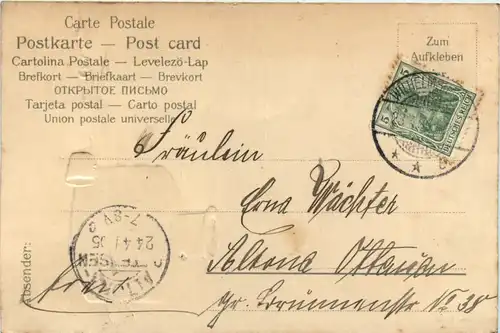 Carte Postale
Postkarte — Post card
Cartolina Postale — Levelezö-Lap
Brefkort — Briefkaart — Brevkort
ОТКРЫТОЕ ПИСЬМО
Tarjeta postal — Carto postal
Union postale universelle
Zum
Aufkleben
5
5
DEUTSCHES REICH
WILHELM
Fräulein
Erna Wächter
Altona Ottensen
Gr. Brunnenstr No 38
Absender:
ALT
24.4.05
7-8V